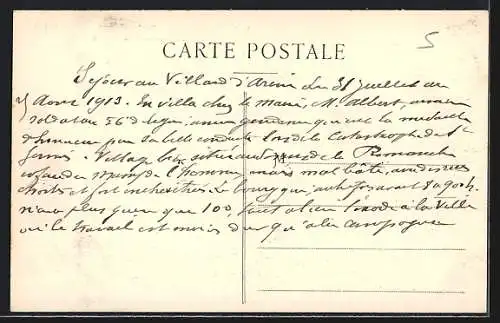 5
CARTE POSTALE
Séjour au Villard d'Arène du 31 juillet au
25 Août 1913. En villa chez le maire, M. Albert, ancien
soldat au 56e de ligne, ancien gendarme qui eut la médaille
d'honneur pour sa belle conduite lors de la catastrophe de St
Gervais. Village bien situé au de la Romanche
en face du de l'Homme, mais mal bâti, aux rues
étroites et fort Le bourg qui autrefois avait 8 à 900 h.
n'a plus guère que 100, tout a l'exode à la Ville
où le travail est moins dur qu'à la campagne